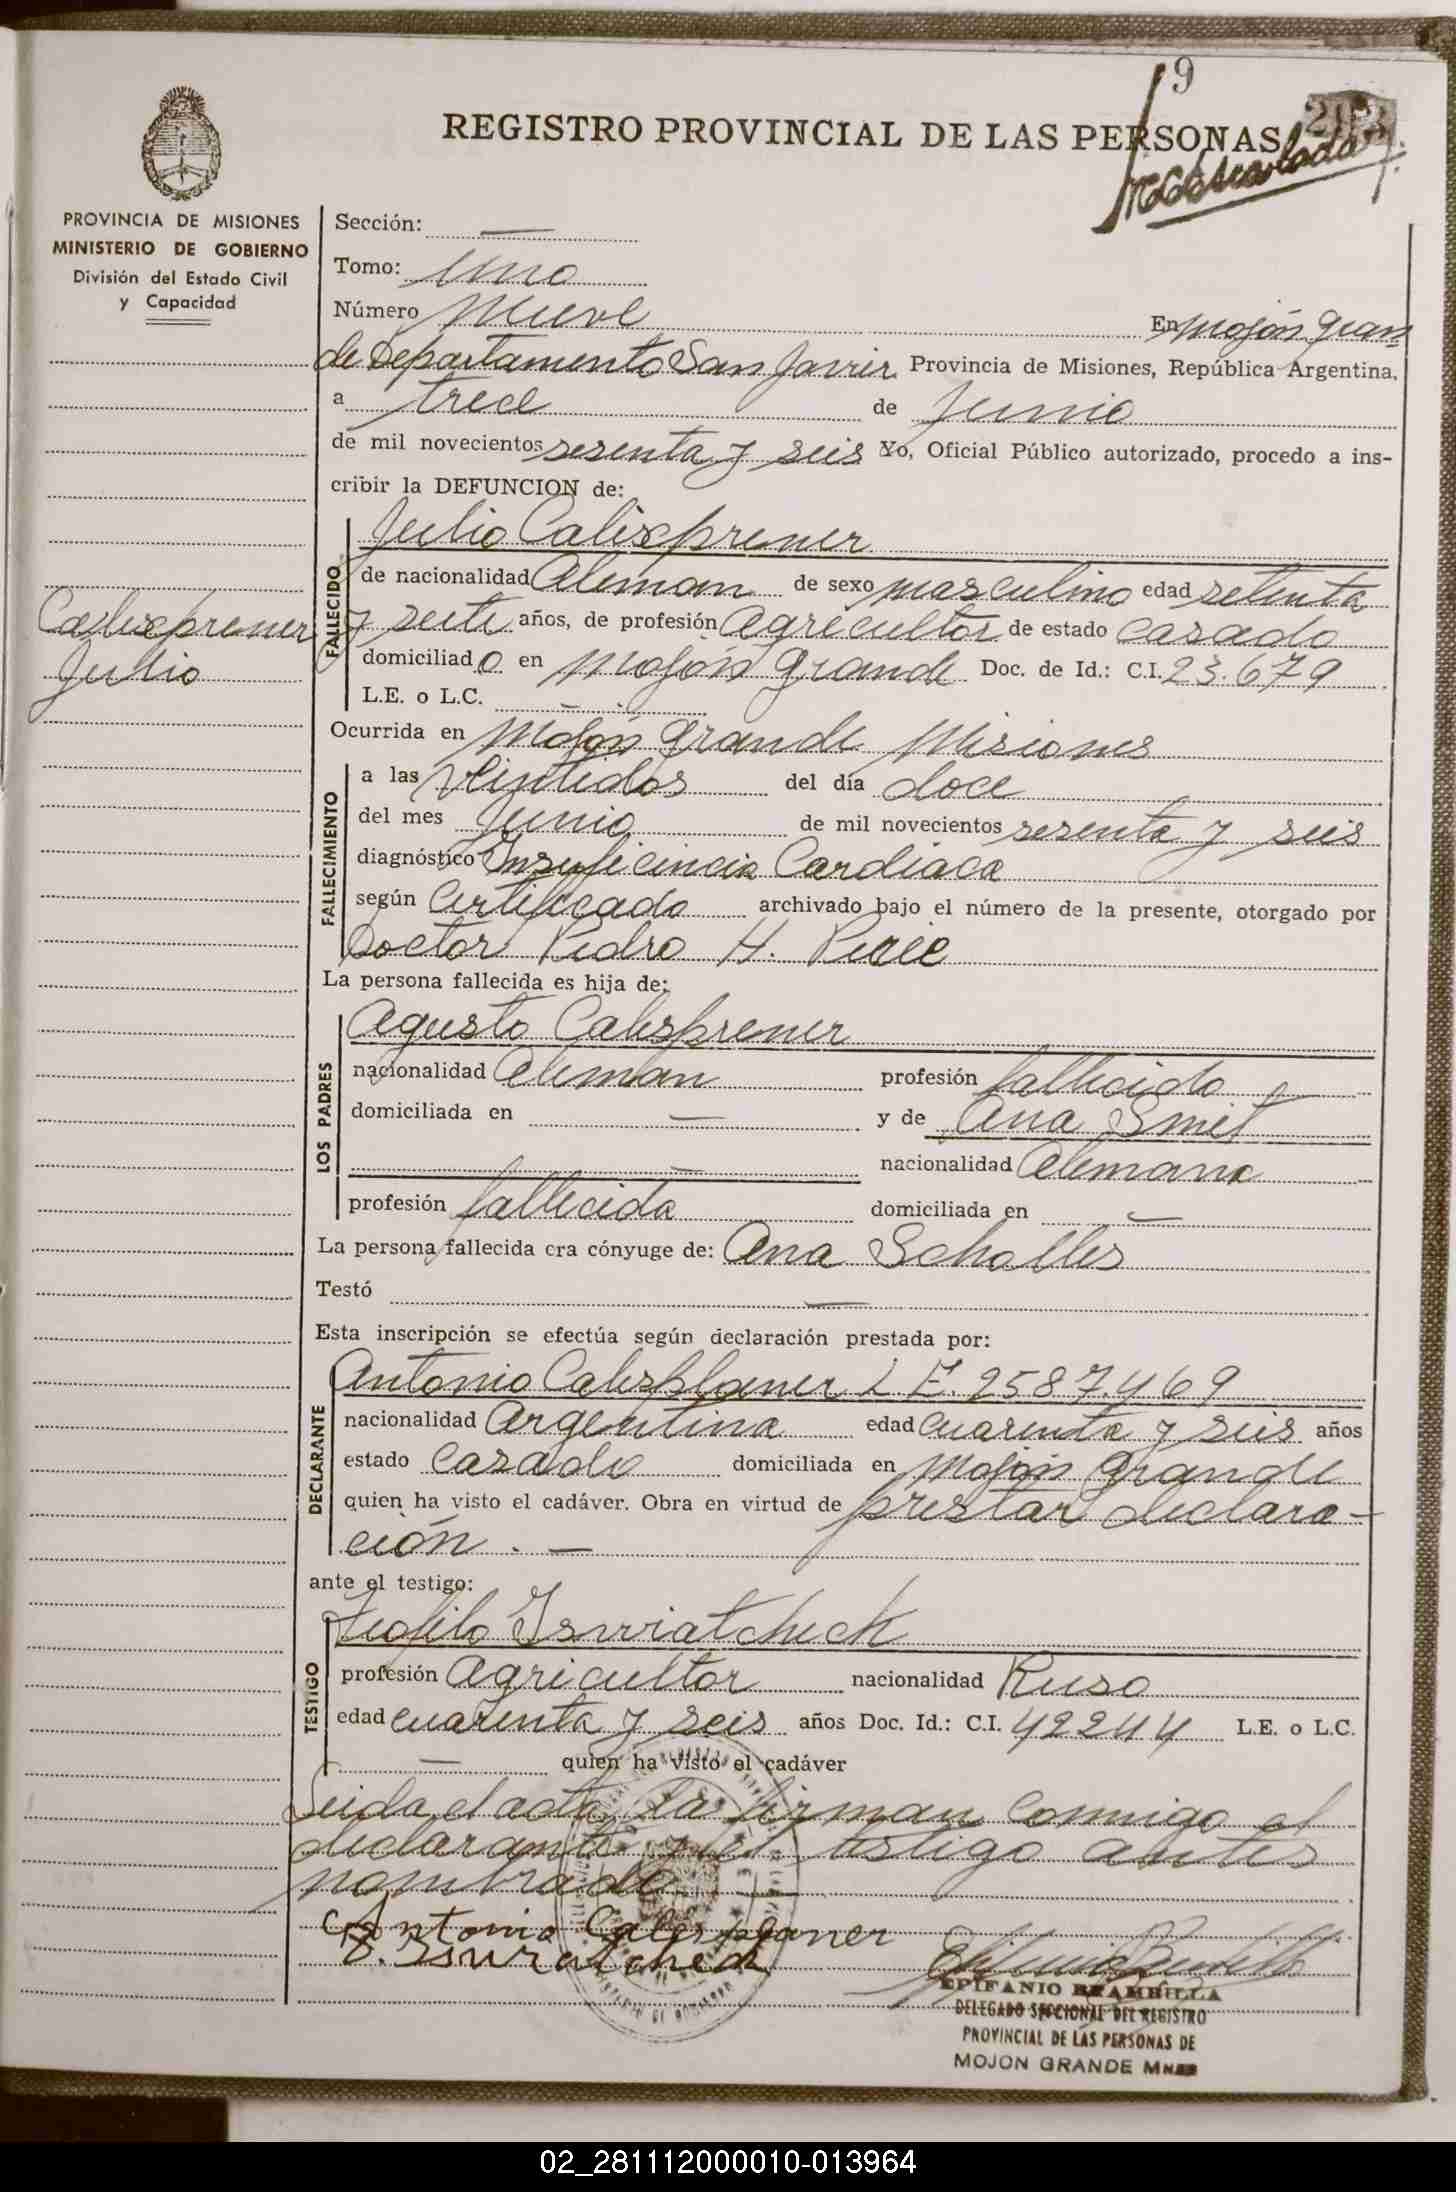 9
REGISTRO PROVINCIAL DE LAS PERSONAS
PROVINCIA DE MISIONES
MINISTERIO DE GOBIERNO
División del Estado Civil
y Capacidad
Sección: —
Tomo: uno
Número Nueve En Mojón Gran
de Departamento San Javier Provincia de Misiones, República Argentina,
a trece de Junio
de mil novecientos sesenta y seis Yo, Oficial Público autorizado, procedo a ins-
cribir la DEFUNCION de:
Calixprener
Julio
FALLECIDO
Julio Calixprener
de nacionalidad Aleman de sexo masculino edad setenta
y siete años, de profesión Agricultor de estado casado
domiciliado en Mojón Grande Doc. de Id.: C.I. 23.679
L.E. o L.C. —
Ocurrida en Mojón Grande Misiones
FALLECIMIENTO
a las veintidos del día doce
del mes Junio de mil novecientos sesenta y seis
diagnóstico Insuficincia Cardiaca
según Certificado archivado bajo el número de la presente, otorgado por
Doctor Pedro H.
La persona fallecida es hija de:
LOS PADRES
Agusto Calisprener
nacionalidad Aleman profesión fallecido
domiciliada en — y de Ana Smit
— nacionalidad Alemana
profesión fallecida domiciliada en —
La persona fallecida era cónyuge de: Ana Scholles
Testó —
Esta inscripción se efectúa según declaración prestada por:
DECLARANTE
Antonio Calisplaner L E. 2587.469
nacionalidad Argentina edad cuarenta y seis años
estado casado domiciliada en Mojón Grande
quien ha visto el cadáver. Obra en virtud de prestar declara-
ción. —
ante el testigo:
TESTIGO
Teofilo Isuviatcheck
profesión Agricultor nacionalidad Ruso
edad cuarenta y seis años Doc. Id.: C.I. 42244 L.E. o L.C.
— quien ha visto el cadáver
Leida el acta, la firman conmigo el
declarante y el testigo antes
nombrado —
Antonio Calesplaner
EPIFANIO BRAMBILLA
DELEGADO SECCIONAL DEL REGISTRO
PROVINCIAL DE LAS PERSONAS DE
MOJON GRANDE Mnes
02_281112000010-013964